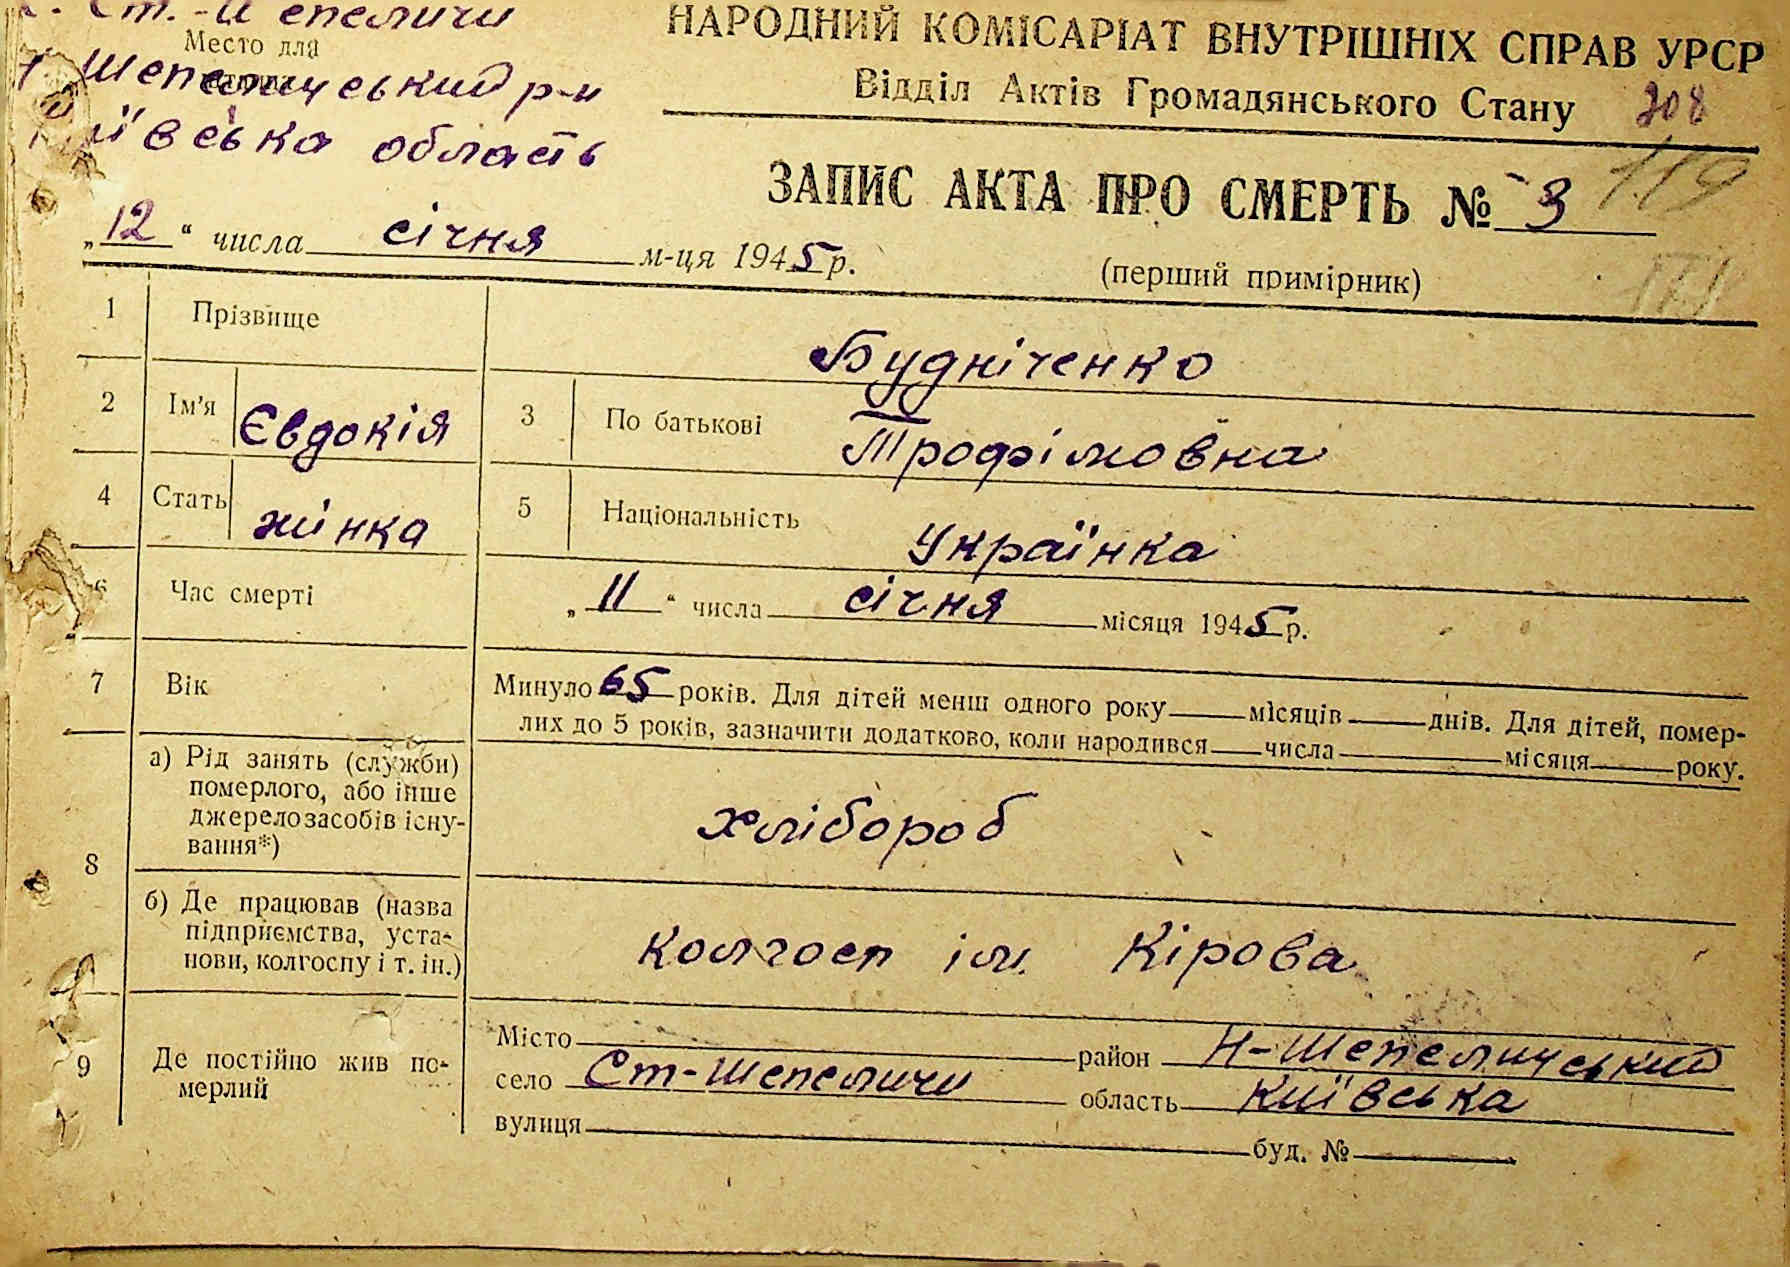 Ст.-Шепеличи
Место для
Н. Шепеличський р-н
Київська область
НАРОДНИЙ КОМІСАРІАТ ВНУТРІШНІХ СПРАВ УРСР
Відділ Актів Громадянського Стану 208
ЗАПИС АКТА ПРО СМЕРТЬ № 3 119
„12“ числа січня м-ця 1945 р.
(перший примірник)
1 Прізвище Будніченко
2 Ім'я Євдокія 3 По батькові Трофімовна
4 Стать жінка 5 Національність Українка
6 Час смерті „11“ числа січня місяця 1945 р.
7 Вік Минуло 65 років. Для дітей менш одного року ___ місяців ___ днів. Для дітей, помер-
лих до 5 років, зазначити додатково, коли народився ___ числа ___ місяця ___ року.
8 а) Рід занять (служби)
померлого, або інше
джерело засобів існу-
вання*)
хлібороб
б) Де працював (назва
підприємства, уста-
нови, колгоспу і т. ін.)
колгосп ім. Кірова
9 Де постійно жив по-
мерлий
Місто ___ район Н-Шепеличський
село Ст-Шепеличи область Київська
вулиця ___ буд. № ___